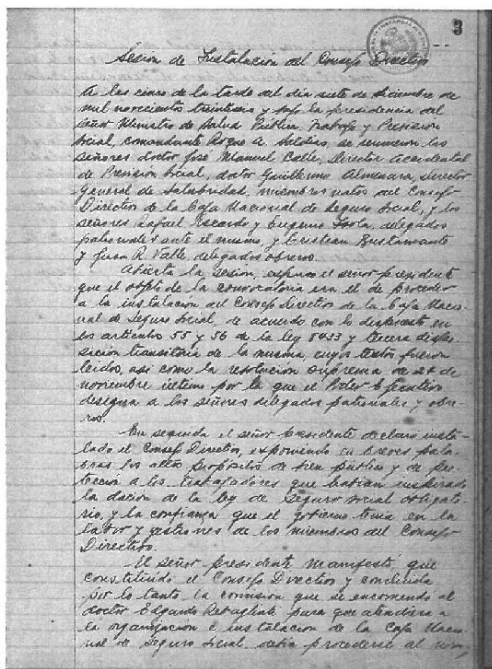 3
Sesión de Instalación del Consejo Directivo
A las cinco de la tarde del día siete de diciembre de
mil novecientos treintiseis y bajo la presidencia del
señor Ministro de Salud Pública, Trabajo y Previsión
Social, comandante Roque A. Saldías, se reunieron los
señores doctor José Manuel Calle, Director Accidental
de Previsión Social, doctor Guillermo Almenara, Director
General de Salubridad, miembros natos del Consejo
Directivo de la Caja Nacional de Seguro Social, y los
señores Rafael Escardo y Eugenio Isola, delegados
patronales ante el mismo, y Cristian Bustamante
y Juan R. Valle delegados obreros.
Abierta la sesión, expuso el señor presidente
que el objeto de la convocatoria era el de proceder
a la instalación del Consejo Directivo de la Caja Nacio-
nal de Seguro Social, de acuerdo con lo dispuesto en
los artículos 55 y 56 de la ley 5433 y tercera dispo-
sición transitoria de la misma, cuyos textos fueron
leídos, así como la resolución suprema de 24 de
noviembre último por la que el Poder Ejecutivo
designa a los señores delegados patronales y obre-
ros.
En seguida el señor presidente declaró insta-
lado el Consejo Directivo, exponiendo en breves pala-
bras los altos propósitos de bien público y de pro-
tección a los trabajadores que habían inspirado
la dación de la ley de Seguro Social obligato-
rio, y la confianza que el gobierno tenía en la
labor y gestiones de los miembros del Consejo
Directivo.
El señor presidente manifestó que
constituido el Consejo Directivo y concluida
por lo tanto, la comisión que se encomendó al
doctor Edgardo Rebagliati para que atendiera a
la organización e instalación de la Caja Nacio-
nal de Seguro Social, debía procederse al nom,